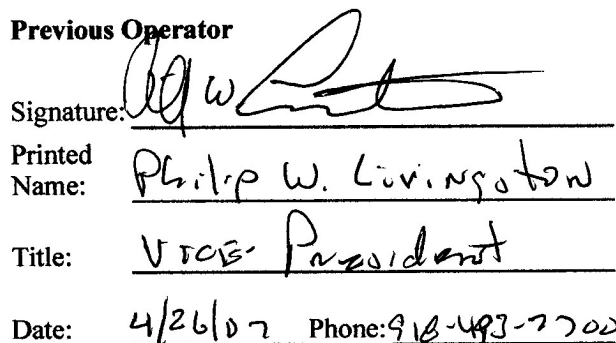 Previous Operator
Signature:
Printed
Name: Philip W. Livingston
Title: Vice President
Date: 4/26/07 Phone: 918-493-7700